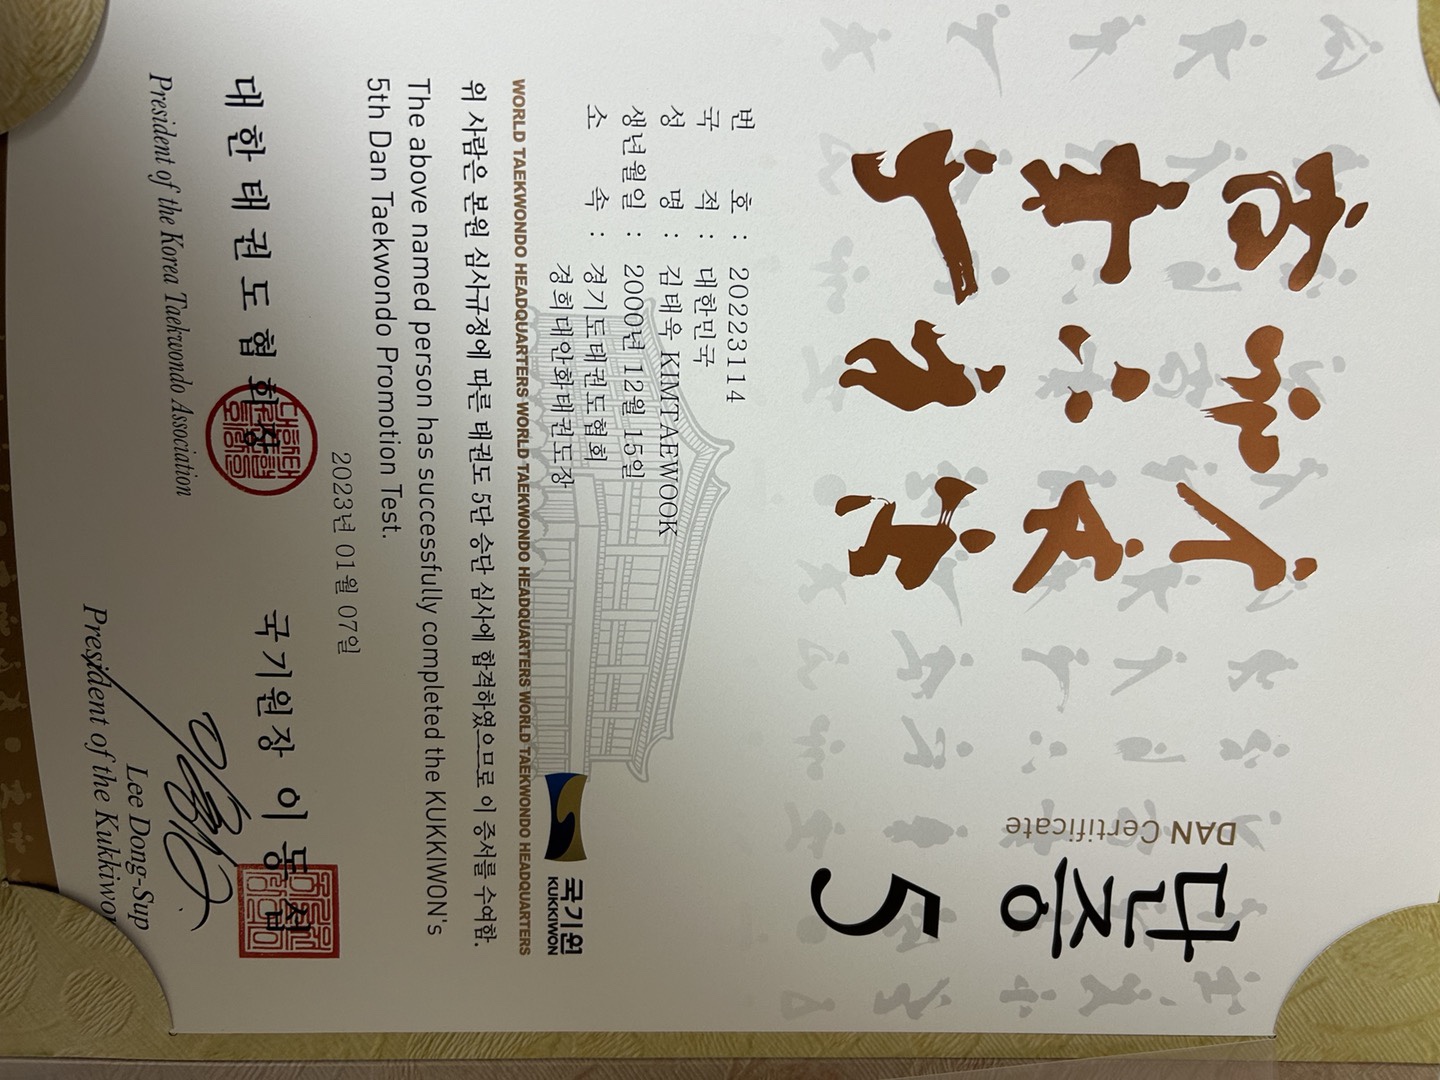 단증 5
DAN Certificate
번 호 : 20223114
국 적 : 대한민국
성 명 : 김태욱 KIMTAEWOOK
생년월일 : 2000년 12월 15일
소 속 : 경기도태권도협회
경희대안화태권도장
국기원
KUKKIWON
WORLD TAEKWONDO HEADQUARTERS WORLD TAEKWONDO HEADQUARTERS WORLD TAEKWONDO HEADQUARTERS
위 사람은 본원 심사규정에 따른 태권도 5단 승단 심사에 합격하였으므로 이 증서를 수여함.
The above named person has successfully completed the KUKKIWON's
5th Dan Taekwondo Promotion Test.
2023년 01월 07일
대한태권도협회장
President of the Korea Taekwondo Association
국기원장 이동섭
Lee Dong-Sup
President of the Kukkiwon